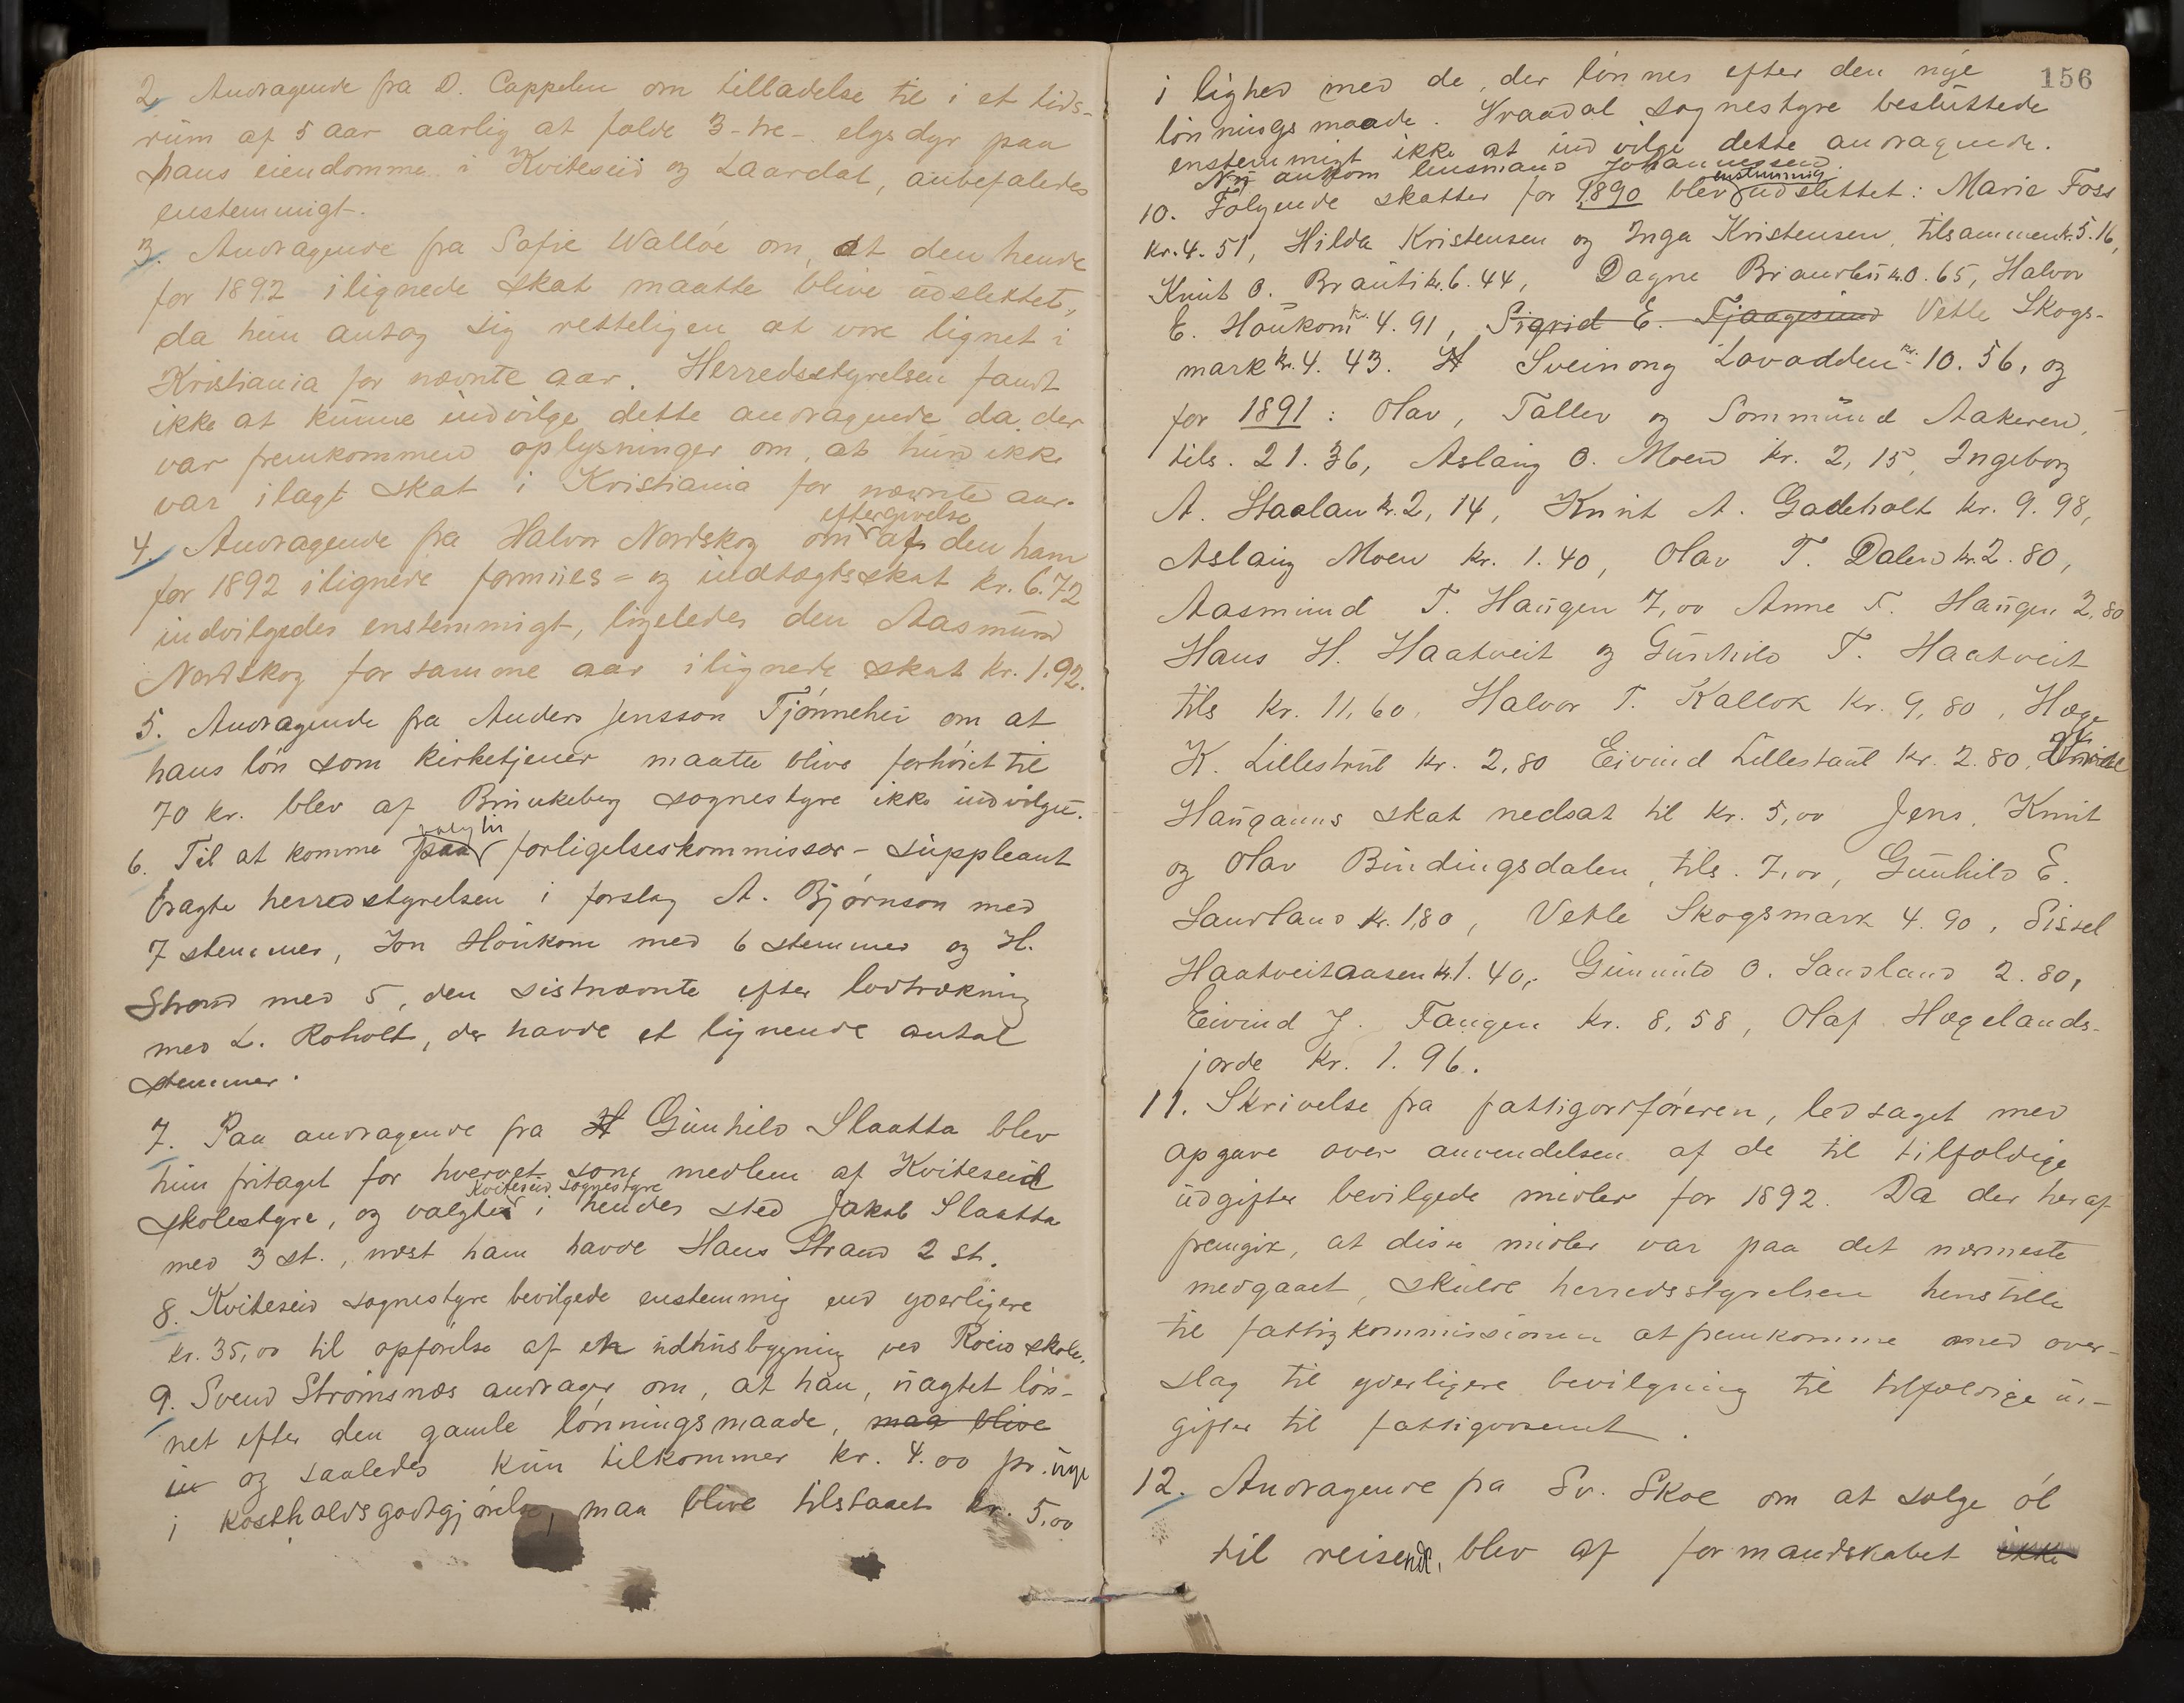 2. Andragende fra D. Cappelen om tilladelse til i et tids-
rum af 5 aar aarlig at fælde 3-tre- elgsdyr paa
hans eiendomme i Kviteseid og Laardal, anbefaledes
enstemmigt.
3. Andragende fra Sofie Walløe om, at den hende
for 1892 ilignede skat maatte blive udslettet,
da hun antog sig retteligen at være lignet i
Kristiania for nævnte aar. Herredsstyrelsen fandt
ikke at kunne indvilge dette andragende da der
var fremkommen oplysninger om, at hun ikke
var ilagt skat i Kristiania for nævnte aar.
eftergivelse
4. Andragende fra Halvor Nordskog om af den ham
for 1892 ilignede formues- og indtægtsskat kr. 6.72
indvilgedes enstemmigt, ligeledes den Aasmund
Nordskog for samme aar ilignede skat kr. 1.92.
5. Andragende fra Anders Jensson Tjønnehei om at
hans løn som kirketjener maatte blive forhøiet til
70 kr. blev af Brunkeberg sognestyre ikke indvilget.
valg til
6. Til at komme paa forligelseskommissær-suppleant
bragte herredstyrelsen i forslag A. Bjørnson med
7 stemmer, Jon Høukom med 6 stemmer og H.
Strand med 5, den sistnævnte efter lodtrækning
med L. Roholt, der havde et lignende antal
stemmer.
7. Paa andragende fra H Gunhild Slaatta blev
hun fritaget for hvervet som medlem af Kviteseid
Kviteseid sognestyre
skolestyre, og valgtes i hendes sted Jakob Slaatta
med 3 st., næst ham havde Hans Strand 2 st.
8. Kviteseid sognestyre bevilgede enstemmig end yderligere
kr. 35,00 til opførelse af en udhusbygning ved Roeid skole.
9. Svend Strømsnæs andrager om, at han, uagtet løn-
net efter den gamle lønningsmaade, maa blive
in og saaledes kun tilkommer kr. 4.00 pr. uge
i kostholdsgodtgjørelse, maa blive tilstaaet kr. 5,00
156
i lighed med de, der lønnes efter den nye
lønningsmaade. Vraadal sognestyre besluttede
enstemmigt ikke at indvilge dette andragende.
Nu ankom lensmand Johannessen.
enstemmig
10. Følgende skatter for 1890 blev udslettet: Marie Foss
kr. 4.51, Hilda Kristensen og Inga Kristensen, tilsammen kr. 5.16,
Knut O. Brauti kr. 6.44, Dagne kr. 0.65, Halvor
E. Høukom kr. 4.91, Sigrid E. Tjaagesund Vetle Skogs-
mark kr. 4.43. H Sveinong Lavadden kr. 10.56, og
for 1891: Olav, Tallev og Sommund Aakeren,
tils. 21.36, Aslaug O. Moen kr. 2,15, Ingeborg
A. Staalan kr. 2,14, Knut A. Gadeholt kr. 9.98,
Aslaug Moen kr. 1.40, Olav T. Dalen kr. 2.80,
Aasmund T. Haugen 7,00 Anne T. Haugen 2,80
Hans H. Haatveit og Gunhild T. Haatveit
tils kr. 11,60, Halvor T. Kallok kr. 9,80, Hæge
K. Lillestaul kr. 2,80 Eivind Lillestaul kr. 2.80,
Hauganes skat nedsat til kr. 5,00 Jens, Knut
og Olav Bindingsdalen, tils. 7,00, Gunhild E.
Saurland kr. 1,80, Vetle Skogsmark 4.90, Sissel
Haatveitaasen kr. 1.40, Gunnuld O. Sandland 2.80,
Eivind J. Tangen kr. 8,58, Olaf Hægelands-
jorde kr. 1.96.
11. Skrivelse fra fattigordføreren, ledsaget med
opgave over anvendelsen af de til tilfældige
udgifter bevilgede midler for 1892. Da der heraf
fremgik, at disse midler var paa det nærmeste
medgaaet, skulde herredsstyrelsen henstille
til fattigkommissionen at fremkomme med over-
slag til yderligere bevilgning til tilfældige ud-
gifter til fattigvæsenet.
12. Andragende fra Sv. Skoe om at sælge øl
til reisende, blev af formandskabet ikke